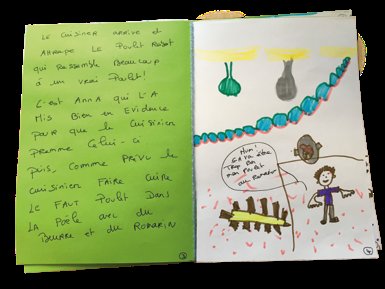 LE CUISINER ARRIVE ET
ATTRAPE LE POULET ROBOT
QUI RESSEMBLE BEAUCOUP
À UN VRAI POULET!
C'EST ANNA QUI L'A
MIS BIEN EN EVIDENCE
POUR QUE LE CUISINIER
PRENNE CELUI-CI
PUIS, COMME PRÉVU LE
CUISINIER FAIRE CUIRE
LE FAUT POULET DANS
LA POÊLE AVEC DU
BEURRE ET DU ROMARIN
HUM!
ÇA VA ÊTRE
TROP BON
MON POULET
AU ROMARIN